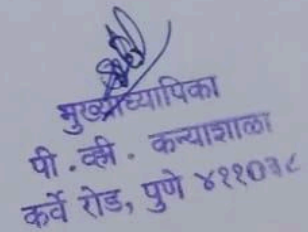 मुख्याध्यापिका
पी. व्ही. कन्याशाळा
कर्वे रोड, पुणे ४११०३८